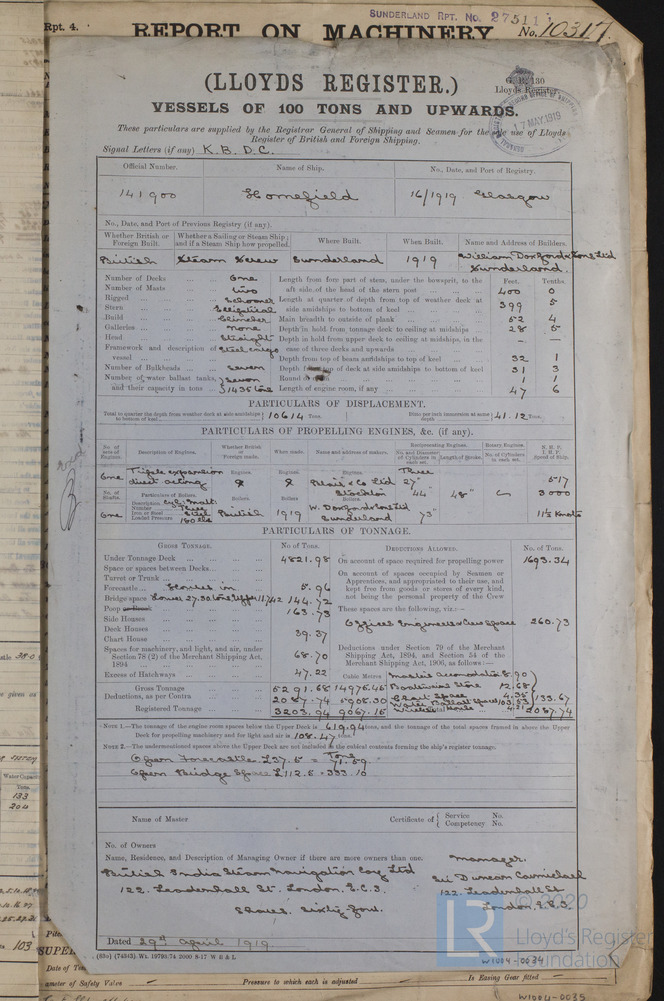 SUNDERLAND RPT. No. 27511
Rpt. 4.
REPORT ON MACHINERY
No. 10317.
(LLOYDS REGISTER.)
VESSELS OF 100 TONS AND UPWARDS.
These particulars are supplied by the Registrar General of Shipping and Seamen for the sole use of Lloyds
Register of British and Foreign Shipping.
17 MAY 1919
Signal Letters (if any) K. B. D. C.
Official Number. Name of Ship. No., Date, and Port of Registry.
141900 Homefield 16/1919 Glasgow
No., Date, and Port of Previous Registry (if any).
Whether British or Foreign Built. Whether a Sailing or Steam Ship; and if a Steam Ship how propelled. Where Built. When Built. Name and Address of Builders.
British Steam Screw Sunderland 1919 William Doxford & Sons Ltd
Sunderland.
Feet. Tenths.
Number of Decks One Length from fore part of stem, under the bowsprit, to the
Number of Masts two aft side of the head of the stern post 400 0
Rigged Schooner Length at quarter of depth from top of weather deck at
Stern Elliptical side amidships to bottom of keel 399 5
Build Clincher Main breadth to outside of plank 52 4
Galleries none Depth in hold from tonnage deck to ceiling at midships 28 5
Head Straight Depth in hold from upper deck to ceiling at midships, in the
Framework and description of vessel Steel cargo case of three decks and upwards — —
Depth from top of beam amidships to top of keel 32 1
Number of Bulkheads Seven Depth from top of deck at side amidships to bottom of keel 31 3
Number of water ballast tanks, Seven Round of beam 1 1
and their capacity in tons 1435 tons Length of engine room, if any 47 6
PARTICULARS OF DISPLACEMENT.
Total to quarter the depth from weather deck at side amidships to bottom of keel 10614 Tons. Ditto per inch immersion at same depth 41.12 Tons.
PARTICULARS OF PROPELLING ENGINES, &c. (if any).
No. of sets of Engines. Description of Engines. Whether British or Foreign made. When made. Name and address of makers. Reciprocating Engines. Rotary Engines. N.H.P. I.H.P. Speed of Ship.
No. and Diameter of Cylinders in each set. Length of Stroke. No. of Cylinders in each set.
One Triple expansion direct acting Engines. Engines. Engines. Blair & Co Ltd Stockton Three 27" 44" 73" 48" 517 3000
No. of Shafts. Particulars of Boilers. Boilers Boilers Boilers
Description Cyl. Mult.
Number Three
One Iron or Steel Steel British 1919 W. Doxford & Sons Ltd Sunderland 11½ Knots
Loaded Pressure 180 lbs
PARTICULARS OF TONNAGE.
GROSS TONNAGE. No. of Tons. DEDUCTIONS ALLOWED. No. of Tons.
Under Tonnage Deck 4821.98 On account of space required for propelling power 1693.34
Space or spaces between Decks On account of spaces occupied by Seamen or
Turret or Trunk Apprentices, and appropriated to their use, and
Forecastle 5.96 kept free from goods or stores of every kind,
Bridge space 144.72 not being the personal property of the Crew
Poop or Break 163.73 These spaces are the following, viz.:—
Side Houses
Deck Houses 39.37 Officers Engineers & Crew Space 260.73
Chart House
Spaces for machinery, and light, and air, under Section 78 (2) of the Merchant Shipping Act, 1894 68.70 Deductions under Section 79 of the Merchant Shipping Act, 1894, and Section 54 of the Merchant Shipping Act, 1906, as follows:—
Excess of Hatchways 47.22 Cubic Metres Masters accomodation 8.90
Gross Tonnage 5291.68 14976.45 Boatswains Store 12.68
Deductions, as per Contra 2087.74 5908.30 Chart Space 4.35
Water Ballast Space 103.53 133.67
Registered Tonnage 3203.94 9067.15 Wireless House 4.21 2087.74
NOTE 1.—The tonnage of the engine room spaces below the Upper Deck is 619.94 tons, and the tonnage of the total spaces framed in above the Upper
Deck for propelling machinery and for light and air is 108.47 tons.
NOTE 2.—The undermentioned spaces above the Upper Deck are not included in the cubical contents forming the ship's register tonnage.
Open Forecastle L37.5 = 71.59 Tons
Open Bridge Space L112.5 = 333.10
Name of Master Certificate of { Service No. Competency No.
No. of Owners
Name, Residence, and Description of Managing Owner if there are more owners than one.
British India Steam Navigation Coy Ltd
122. Leadenhall St. London. E.C.3.
Shares. Sixty four.
Manager.
Sir Duncan Carmichael
122. Leadenhall St
London. E.C.3.
Dated 29th April 1919.
(83o) (74343). Wt. 19793/74 2000 8-17 W B & L
W1004-0034
© 2020
LR
Lloyd's Register
Foundation
Pressure to which each is adjusted
Is Easing Gear fitted
W1004-0035